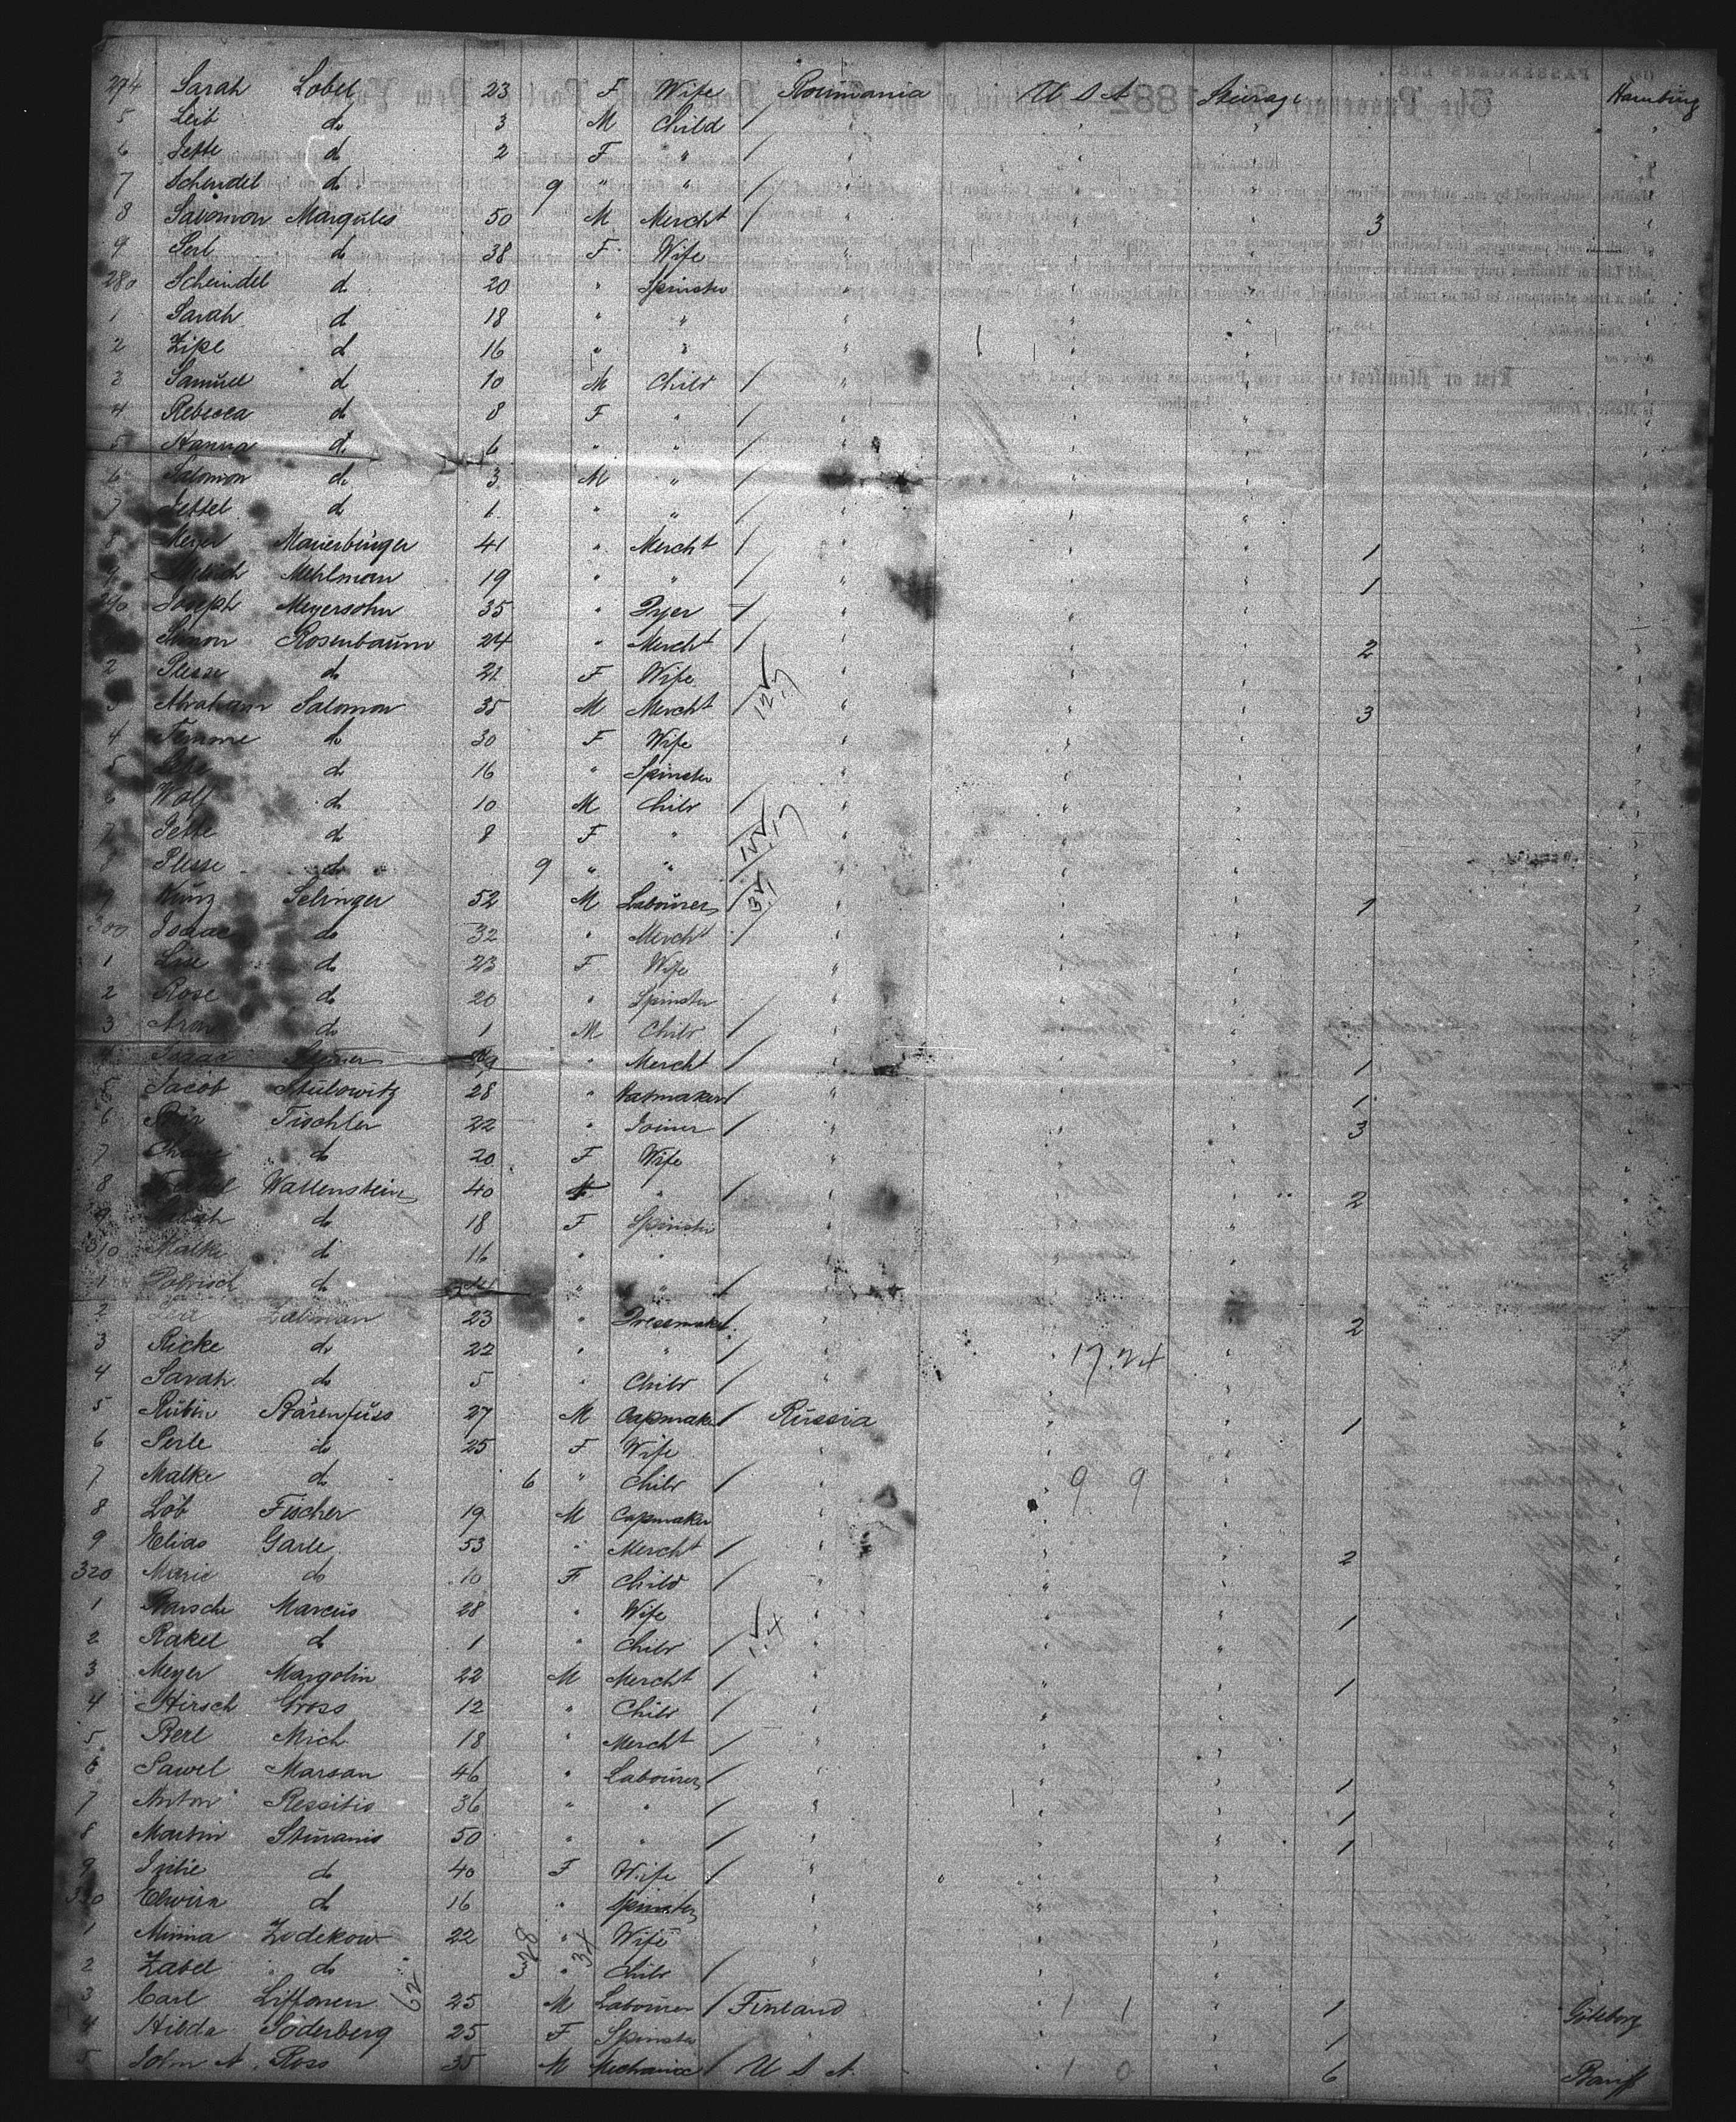 274 Sarah Lobel 23 F Wife Roumania U S A Steerage Hamburg
5 Leib do 3 M Child /
6 Jette d 2 F " /
7 Scheindel d 9 " " /
8 Salomon Margules 50 M Mercht / 3
9 Perl do 38 F Wife
280 Scheindel d 20 " Spinster
1 Sarah d 18 " "
2 Zipe d 16 " "
3 Samuel d 10 M Child /
4 Rebecca d 8 F " /
5 Hanna d 6 " " /
6 Salomon d 3 M " /
7 d 1 " " /
8 Meyer Mauerberger 41 " Mercht / 1
9 Mehlman 19 " " / 1
290 Joseph Meyersohn 35 " Dyer /
Simon Rosenbaum 24 " Mercht / 2
2 Plesse do 21 F Wife
3 Abraham Salomon 35 M Mercht / 3
4 do 30 F Wife
5 d 16 " Spinster
6 Wolf d 10 M Child /
7 Jette d 8 F " /
8 Plesse do 9 " " /
9 Kunz Selinger 52 M Labourer / 1
300 Isaac do 32 " Mercht /
1 Lise do 23 F Wife
2 Rose do 20 " Spinster
3 Aron do 1 M Child /
4 Isaac " Mercht / 1
5 Jacob 28 " Hatmaker / 1
6 Tischler 22 " Joiner / 3
7 do 20 F Wife
8 Wallenstein 40 " / 2
9 do 18 F Spinster
310 Malke d 16 " "
1 d " " /
2 Zalman 23 " Dressmaker 2
3 Ricke do 22 " " / 17.24
4 Sarah do 5 " Child /
5 Rubin Bärenfuss 27 M Capmaker / Russia 1
6 Perle do 25 F Wife
7 Malke d 6 " Child / 9 9
8 Löb Fischer 19 M Capmaker
9 Elias Garle 53 " Mercht / 2
320 Marie do 10 F Child /
1 Marcus 28 " Wife 1
2 Rakel d 1 " Child /
3 Meyer Margolin 22 M Mercht / 1
4 Hirsch Gross 12 " Child /
5 Berl Mich 18 " Mercht /
6 Sawel Marsan 46 " Labourer / 1
7 Anton Ressitis 36 " " / 1
8 Martin 50 " " / 1
9 Julie do 40 F Wife /
330 Elwira d 16 " Spinster
1 Minna Zodekow 22 " Wife
2 Zabel do " Child /
3 Carl 25 M Labourer / Finland 1 1 1 Göteborg
4 Hilda Söderberg 25 F Spinster 1
5 John A. Ross 35 M Mechanic / U S A 1 0 6 Banff